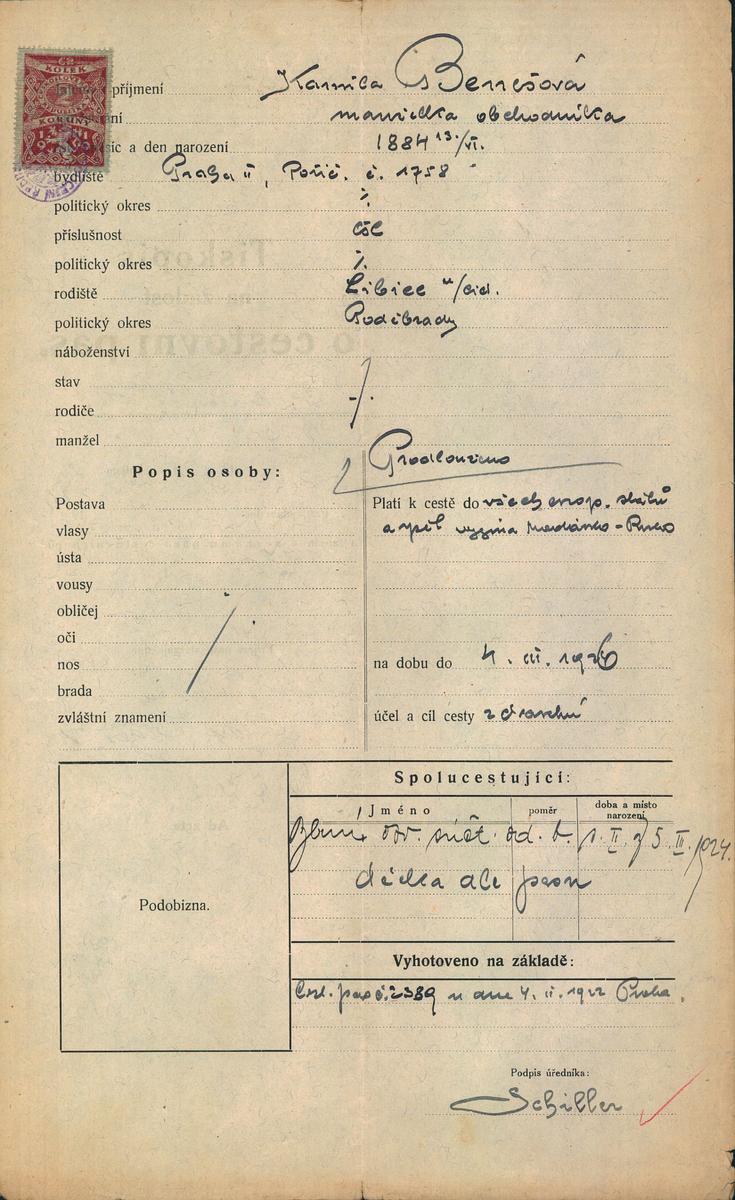 KOLEK
KORUNY
příjmení Kamila Benešová
manželka obchodníka
a den narození 1884 13./VI.
bydliště Praha II, Poříč. č. 1758
politický okres ⁒
příslušnost čsl
politický okres ⁒
rodiště Libice n/cid.
politický okres Poděbrady
náboženství
stav
rodiče
manžel
Popis osoby:
Prodlouženo
Postava
Platí k cestě do všech evrop. států
vlasy
a zpět vyjma Maďarsko-Rusko
ústa
vousy
obličej
oči
nos
na dobu do 4. III. 1926
brada
zvláštní znamení
účel a cíl cesty
Spolucestující:
Jméno
poměr
doba a místo
narození
od b. 1. II. 5. III. 1924.
Podobizna.
Vyhotoveno na základě:
č. 2389 4. II. 1922 Praha.
Podpis úředníka:
Schiller